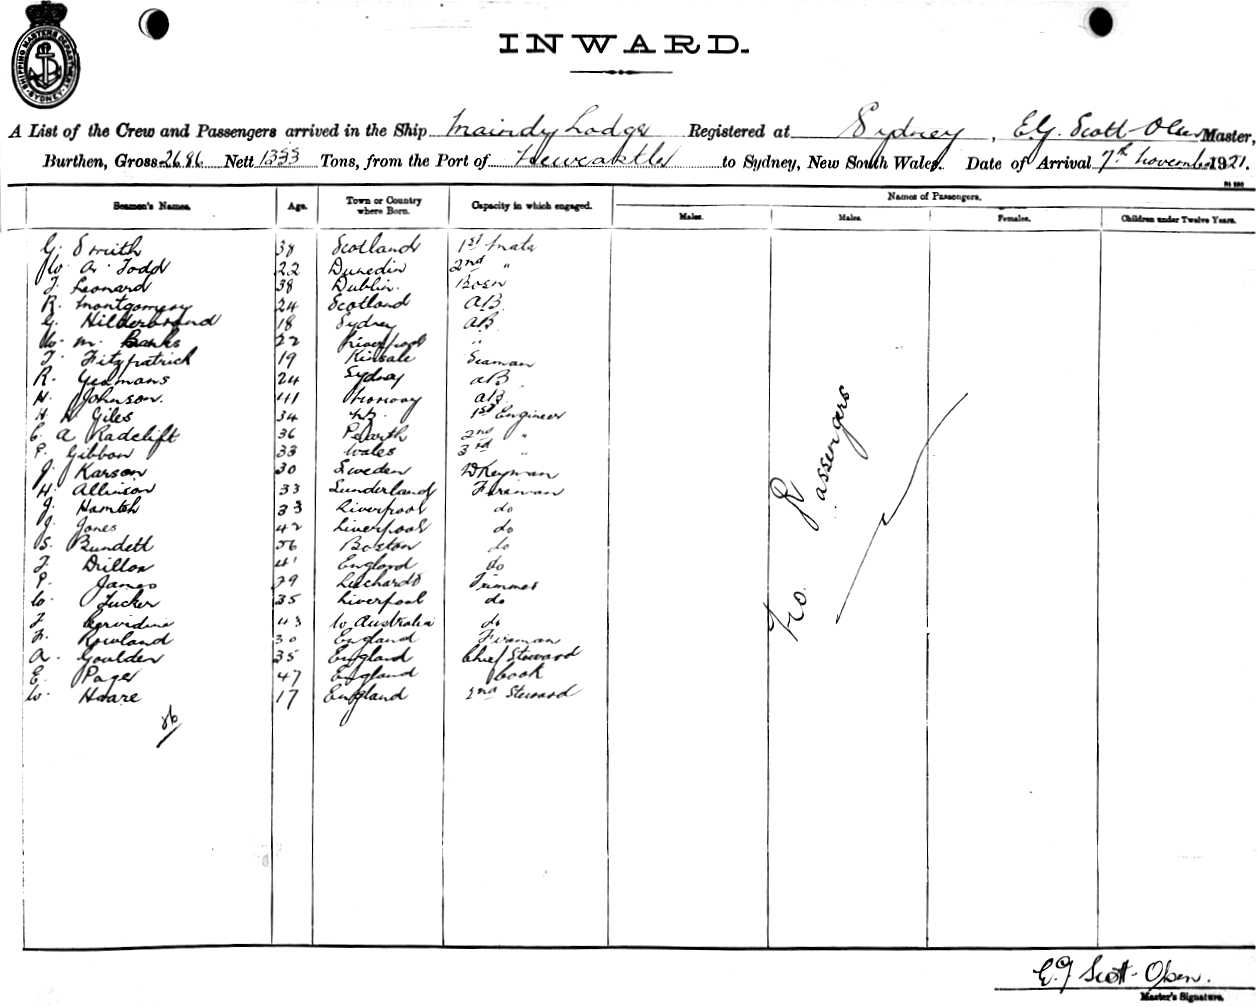 SHIPPING MASTERS DEPARTMENT SYDNEY
INWARD.
A List of the Crew and Passengers arrived in the Ship Maindy Lodge Registered at Sydney, E.J. Scott-Olsen Master,
Burthen, Gross 2686 Nett 1353 Tons, from the Port of Newcastle to Sydney, New South Wales. Date of Arrival 7th November 1921.
Names of Passengers.
Seamen's Names. Age. Town or Country where Born. Capacity in which engaged. Males. Males. Females. Children under Twelve Years.
G. Smith 38 Scotland 1st Mate
W. A. Todd 22 Dunedin 2nd "
J. Leonard 38 Dublin. Bosn
R. Montgomery 24 Scotland AB
G. Hilderbrand 18 Sydney AB
W. M. Banks 22 Liverpool "
T. Fitzpatrick 19 Kinsale Seaman
R. Yeamans 24 Sydney AB
H. Johnson. 41 Norway AB
H. H Giles 34 NZ. 1st Engineer
C. A Radclift 36 Penarth 2nd "
P. Gibbon 33 Wales 3rd "
J. Karson 30 Sweden Dkeyman
H. Allinson 33 Sunderland Fireman
J. Hamteh 33 Liverpool do
J. Jones 42 Liverpool do
S. Bundett 56 Boston do
J. Drillon 41 England do
P. James 29 Leichardt Trimmer
W. Tucker 35 Liverpool do
J. 43 W Australia do
F. Rowland 30 England Fireman
A. Goulden 35 England Chief Steward
E. Page 47 England Cook
W. Hoare 17 England 2nd Steward
26
No Passengers
E.J Scott-Olsen.
Master's Signature.